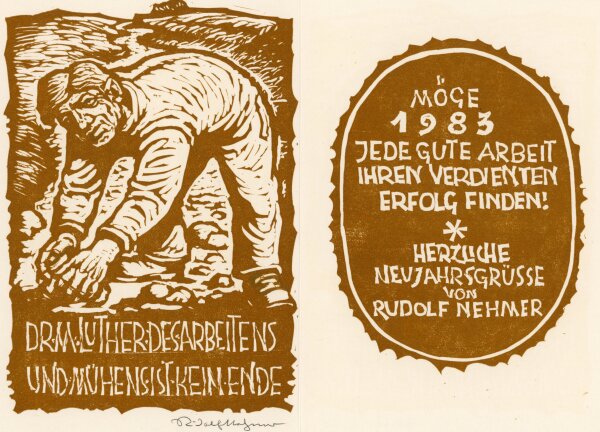 DR·M·LUTHER·DES·ARBEITENS
UND·MÜHENS·IST·KEIN·ENDE
Rudolf Nehmer
MÖGE
1983
JEDE GUTE ARBEIT
IHREN VERDIENTEN
ERFOLG FINDEN!
*
HERZLICHE
NEUJAHRSGRÜSSE
VON
RUDOLF NEHMER